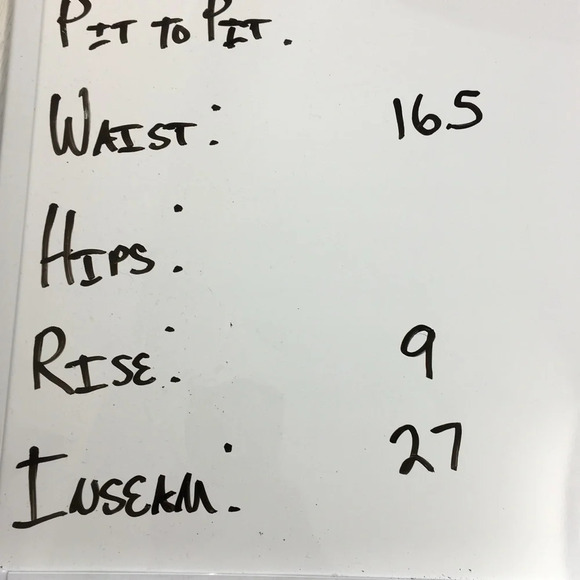 PIT TO PIT.
WAIST: 165
HIPS:
RISE: 9
INSEAM: 27